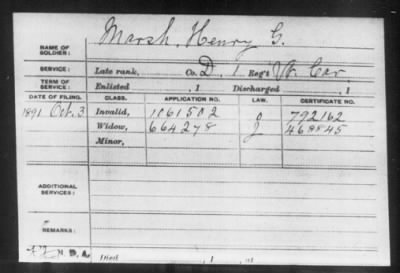 NAME OF SOLDIER: Marsh, Henry G.
SERVICE: Late rank, Co. D, 1 Reg't Vt. Cav.
TERM OF SERVICE: Enlisted , 1 Discharged , 1
DATE OF FILING. CLASS. APPLICATION NO. LAW. CERTIFICATE NO.
1891 Oct. 3 Invalid, 1061502 792162
Widow, 664278 468845
Minor,
ADDITIONAL SERVICES:
REMARKS:
Died , 1 , at